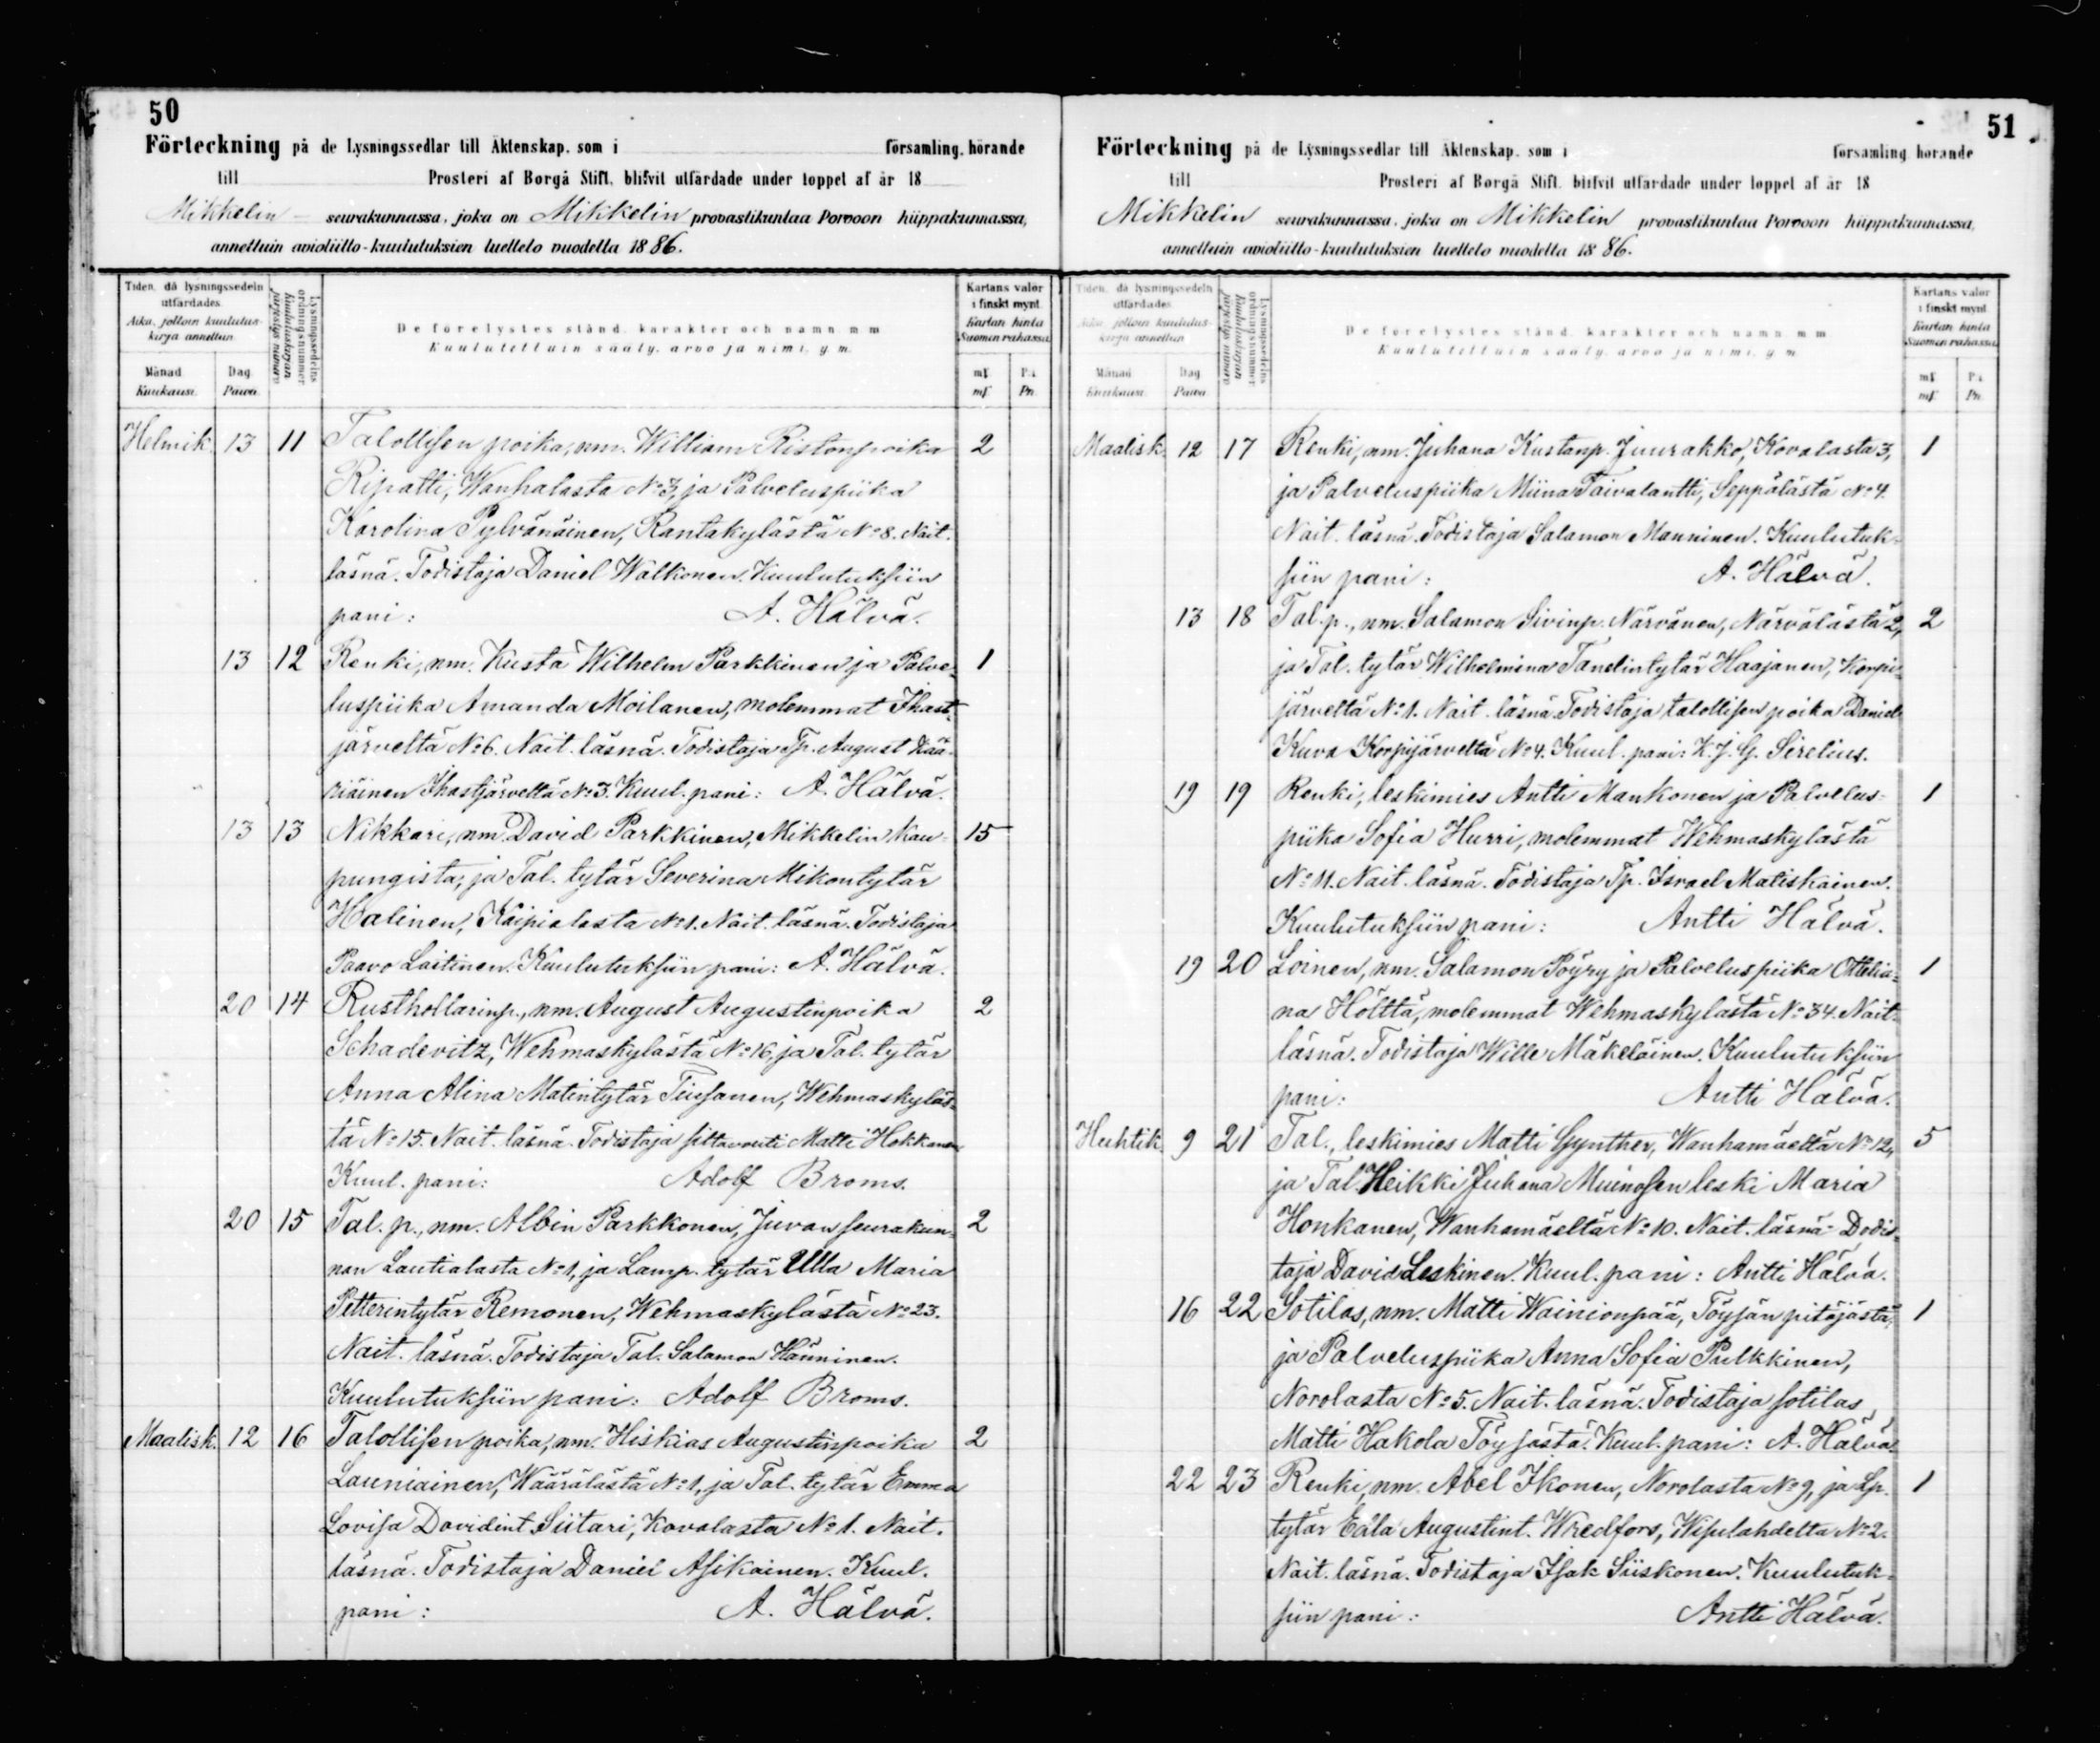 50
Förteckning på de Lysningssedlar till Äktenskap, som i församling, hörande
till Prosteri af Borgå Stift, blifvit utfärdade under loppet af år 18
Mikkelin seurakunnassa, joka on Mikkelin provastikuntaa Porvoon hiippakunnassa,
annettuin avioliitto-kuulutuksien luettelo vuodelta 1886.
Tiden, då lysningssedeln utfärdades.
Aika, jolloin kuulutuskirja annettiin.
Månad Kuukausi.
Dag. Päivä.
Lysningssedelns ordningsnummer
Kuulutuskirjan järjestys numero
De förelystes stånd, karakter och namn m m
Kuulutettuin sääty, arvo ja nimi, y. m.
Kartans valör i finskt mynt.
Kartan hinta Suomen rahassa.
mf. mf.
P:i. Pn.
Helmik. 13 11 Talollisen poika, nm. William Ristonpoika 2
Ripatti, Wanhalasta No 3, ja Palveluspiika
Karolina Pylvänäinen, Rantakylästä No 8. Nait.
läsnä. Todistaja Daniel Walkonen. Kuulutuksiin
pani: A. Hälvä.
13 12 Renki, nm. Kusta Wilhelm Parkkinen ja Palve- 1
luspiika Amanda Moilanen, molemmat Ihast-
järveltä No 6. Nait. läsnä. Todistaja Tp. August Kää-
riäinen Ihastjärveltä No 3. Kuul. pani: A. Hälvä.
13 13 Nikkari, nm. David Parkkinen, Mikkelin kau- 15
pungista, ja Tal. tytär Severina Mikontytär
Halinen, Kaipialasta No 1. Nait. läsnä. Todistaja
Paavo Laitinen. Kuulutuksiin pani: A. Hälvä.
20 14 Rusthollarinp., nm. August Augustinpoika 2
Schadevitz, Wehmaskylästä No 16, ja Tal. tytär
Anna Alina Matintytär Tiusanen, Wehmaskyläs-
tä No 15. Nait. läsnä. Todistaja siltavouti Matti Hokkanen
Kuul. pani: Adolf Broms.
20 15 Tal. p., nm. Albin Parkkonen, Juvan seurakun- 2
nan Lautialasta No 1, ja Lamp. tytär Ulla Maria
Petterintytär Remonen, Wehmaskylästä No 23.
Nait. läsnä. Todistaja Tal. Salamon Hänninen.
Kuulutuksiin pani: Adolf Broms.
Maalisk. 12 16 Talollisen poika, nm. Hiskias Augustinpoika 2
Launiainen, Wäärälästä No 1, ja Tal. tytär Emma
Lovisa Davidint. Siitari, Kovalasta No 1. Nait.
läsnä. Todistaja Daniel Asikainen. Kuul.
pani: A. Hälvä.
51
Förteckning på de Lysningssedlar till Äktenskap, som i församling hörande
till Prosteri af Borgå Stift, blifvit utfärdade under loppet af år 18
Mikkelin seurakunnassa, joka on Mikkelin provastikuntaa Porvoon hiippakunnassa,
annettuin avioliitto-kuulutuksien luettelo vuodelta 1886.
Tiden, då lysningssedeln utfärdades.
Aika, jolloin kuulutuskirja annettiin
Månad Kuukausi.
Dag Päivä.
Lysningssedelns ordningsnummer
Kuulutuskirjan järjestys numero
De förelystes stånd, karakter och namn m m
Kuulutettuin sääty, arvo ja nimi, y. m.
Kartans valör i finskt mynt.
Kartan hinta Suomen rahassa.
mf. mf.
P:i. Pn.
Maalisk. 12 17 Renki, nm. Juhana Kustanp. Juurakko, Kovalasta 3, 1
ja Palveluspiika Miina Taivalantti, Seppälästä No 4.
Nait. läsnä. Todistaja Salamon Manninen. Kuulutuk-
siin pani: A. Hälvä.
13 18 Tal. p., nm. Salamon Sivinp. Närvänen, Närvälästä 2, 2
ja Tal. tytär Wilhelmina Tanelintytär Haajanen, Korpi-
järveltä No 1. Nait. läsnä. Todistaja talollisen poika Daniel
Kuva Korpijärveltä No 4. Kuul. pani: K. J. G. Sirelius.
19 19 Renki, leskimies Antti Mankonen ja Palvelus- 1
piika Sofia Hurri, molemmat Wehmaskylästä
No 11. Nait. läsnä. Todistaja Tp. Israel Matiskainen.
Kuulutuksiin pani: Antti Hälvä.
19 20 Loinen, nm. Salamon Pöyry ja Palveluspiika Ottelia- 1
na Hölttä, molemmat Wehmaskylästä No 34. Nait.
läsnä. Todistaja Wille Mäkeläinen. Kuulutuksiin
pani: Antti Hälvä.
Huhtik. 9 21 Tal., leskimies Matti Gynther, Wanhamäeltä No 12, 5
ja Tal. Heikki Juhana Muinosen leski Maria
Honkanen, Wanhamäeltä No 10. Nait. läsnä. Todis-
taja David Leskinen. Kuul. pani: Antti Hälvä.
16 22 Sotilas, nm. Matti Wainionpää, Töysän pitäjästä, 1
ja Palveluspiika Anna Sofia Pulkkinen,
Norolasta No 5. Nait. läsnä. Todistaja sotilas
Matti Hakola Töysästä. Kuul. pani: A. Hälvä.
22 23 Renki, nm. Abel Ikonen, Norolasta No 9, ja Lp. 1
tytär Edla Augustint. Wredfors, Wisulahdelta No 2.
Nait. läsnä. Todistaja Isak Siiskonen. Kuulutuk-
siin pani: Antti Hälvä.